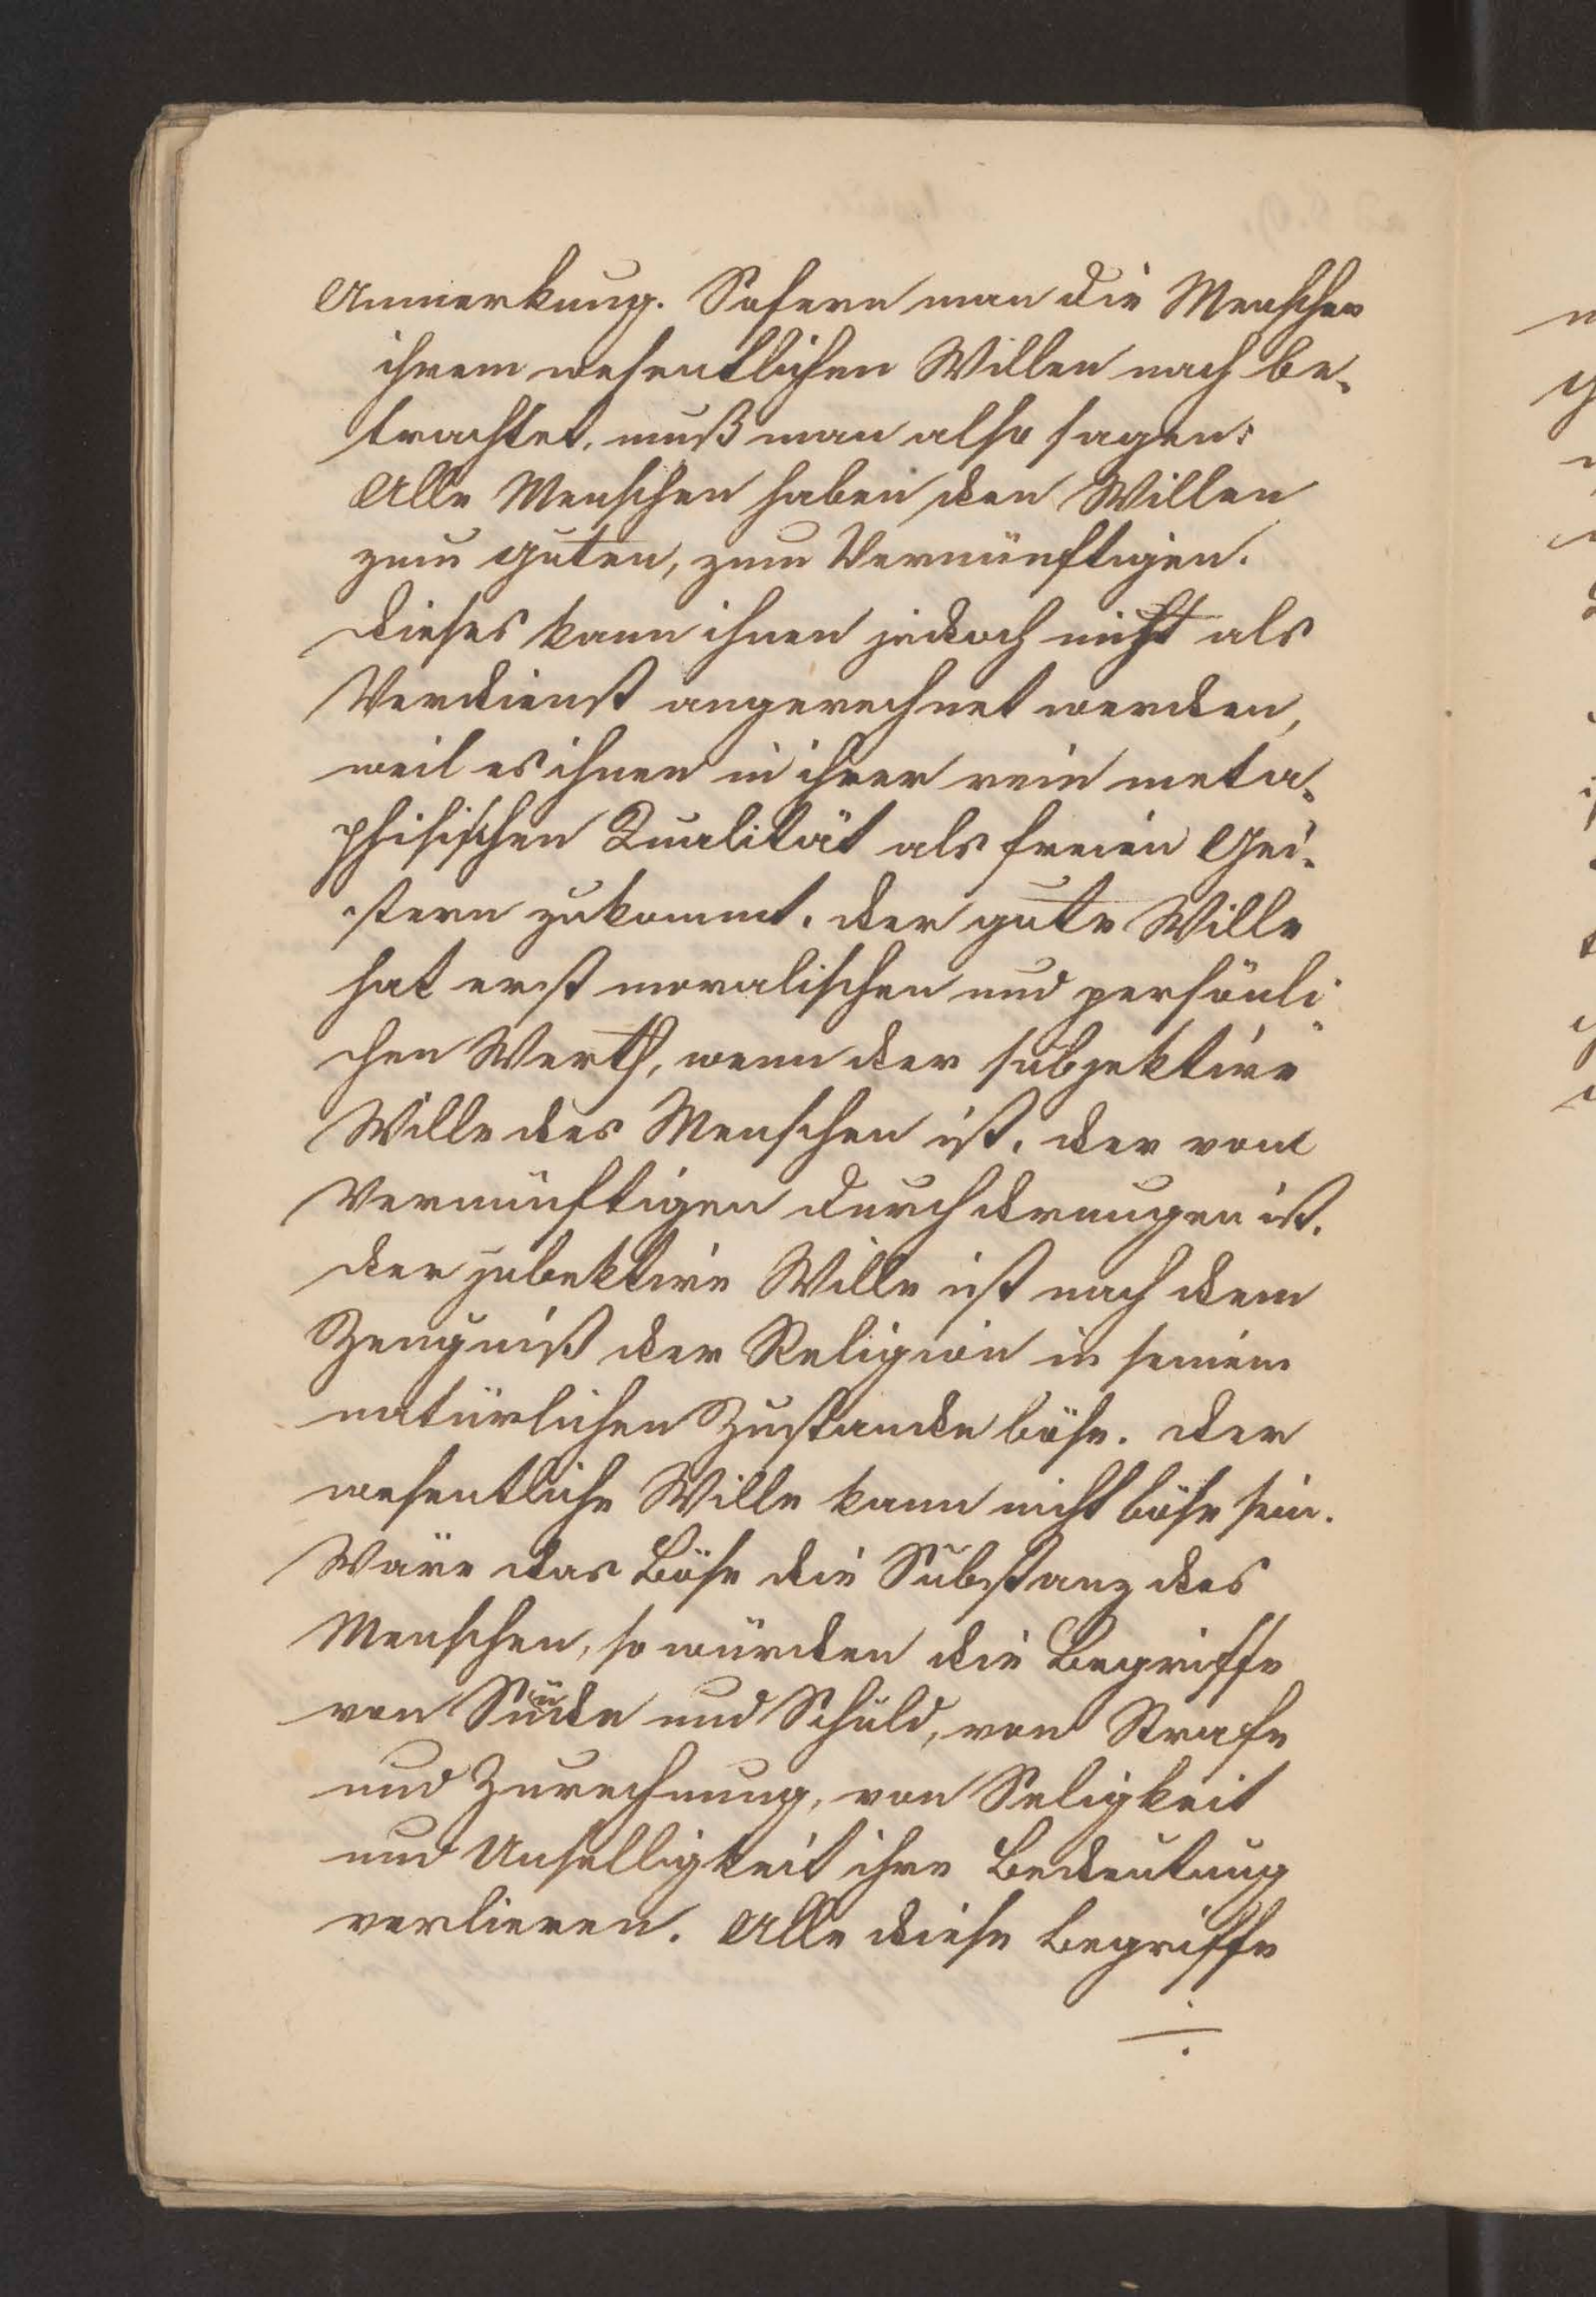 Anmerkung. Sofern man die Menschen
ihrem wesentlichen Willen nach be-
trachtet, muß man also sagen:
Alle Menschen haben den Willen
zum guten, zum Vernünftigen.
Dieses kann ihnen jedoch nicht als
Verdienst angerechnet werden,
weil es ihnen in ihrer rein meta-
phisischen Qualität als freien Gei-
stern zukommt. Der gute Wille
hat erst moralischen und persönli-
chen Werth, wenn der subjektive
Wille des Menschen ist, der vom
Vernünftigen durchdrungen ist.
Der jubektive Wille ist nach dem
Zeugniß der Religion in seinem
natürlichen Zustande böse. Der
wesentliche Wille kann nicht böse sein.
Wäre das Böse die Substanz des
Menschen, so würden die Begriffe
von Sünde und Schuld, von Strafe
und Zurechnung, von Seligkeit
und Unselligkeit ihre Bedeutung
verlieren. Alle diese Begriffe